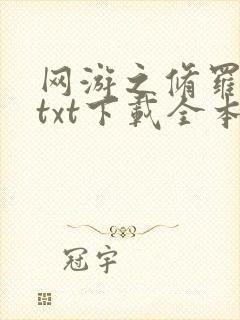 网游之修罗
txt下载全本
冠宇